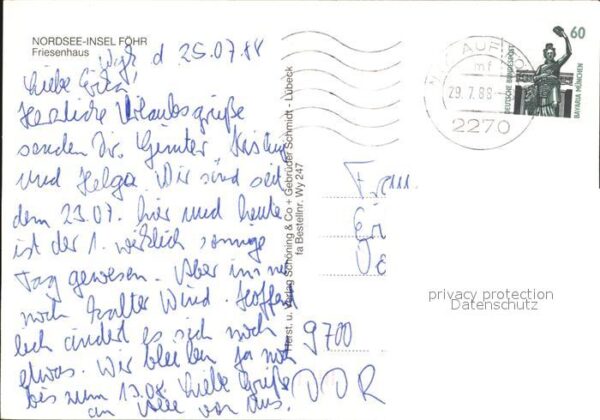 NORDSEE-INSEL FÖHR
Friesenhaus
Wyk d 25.07.88
Liebe Erika!
Herzliche Urlaubsgrüße
senden Dir Günter,
und Helga. Wir sind seit
dem 23.07. hier und heute
ist der 1. wirklich sonnige
Tag gewesen. Aber immer
noch kalter Wind. Hoffent
lich ändert es sich noch
etwas. Wir bleiben ja noch
bis zum 13.08. Liebe Grüße
an Alle von uns.
Herst. u. Verlag Schöning & Co + Gebrüder Schmidt - Lübeck
fa Bestellnr. Wy 247
AUF
mf
29.7.88
2270
60
DEUTSCHE BUNDESPOST
BAVARIA MÜNCHEN
Frau
Er
privacy protection
Datenschutz
9700
DDR